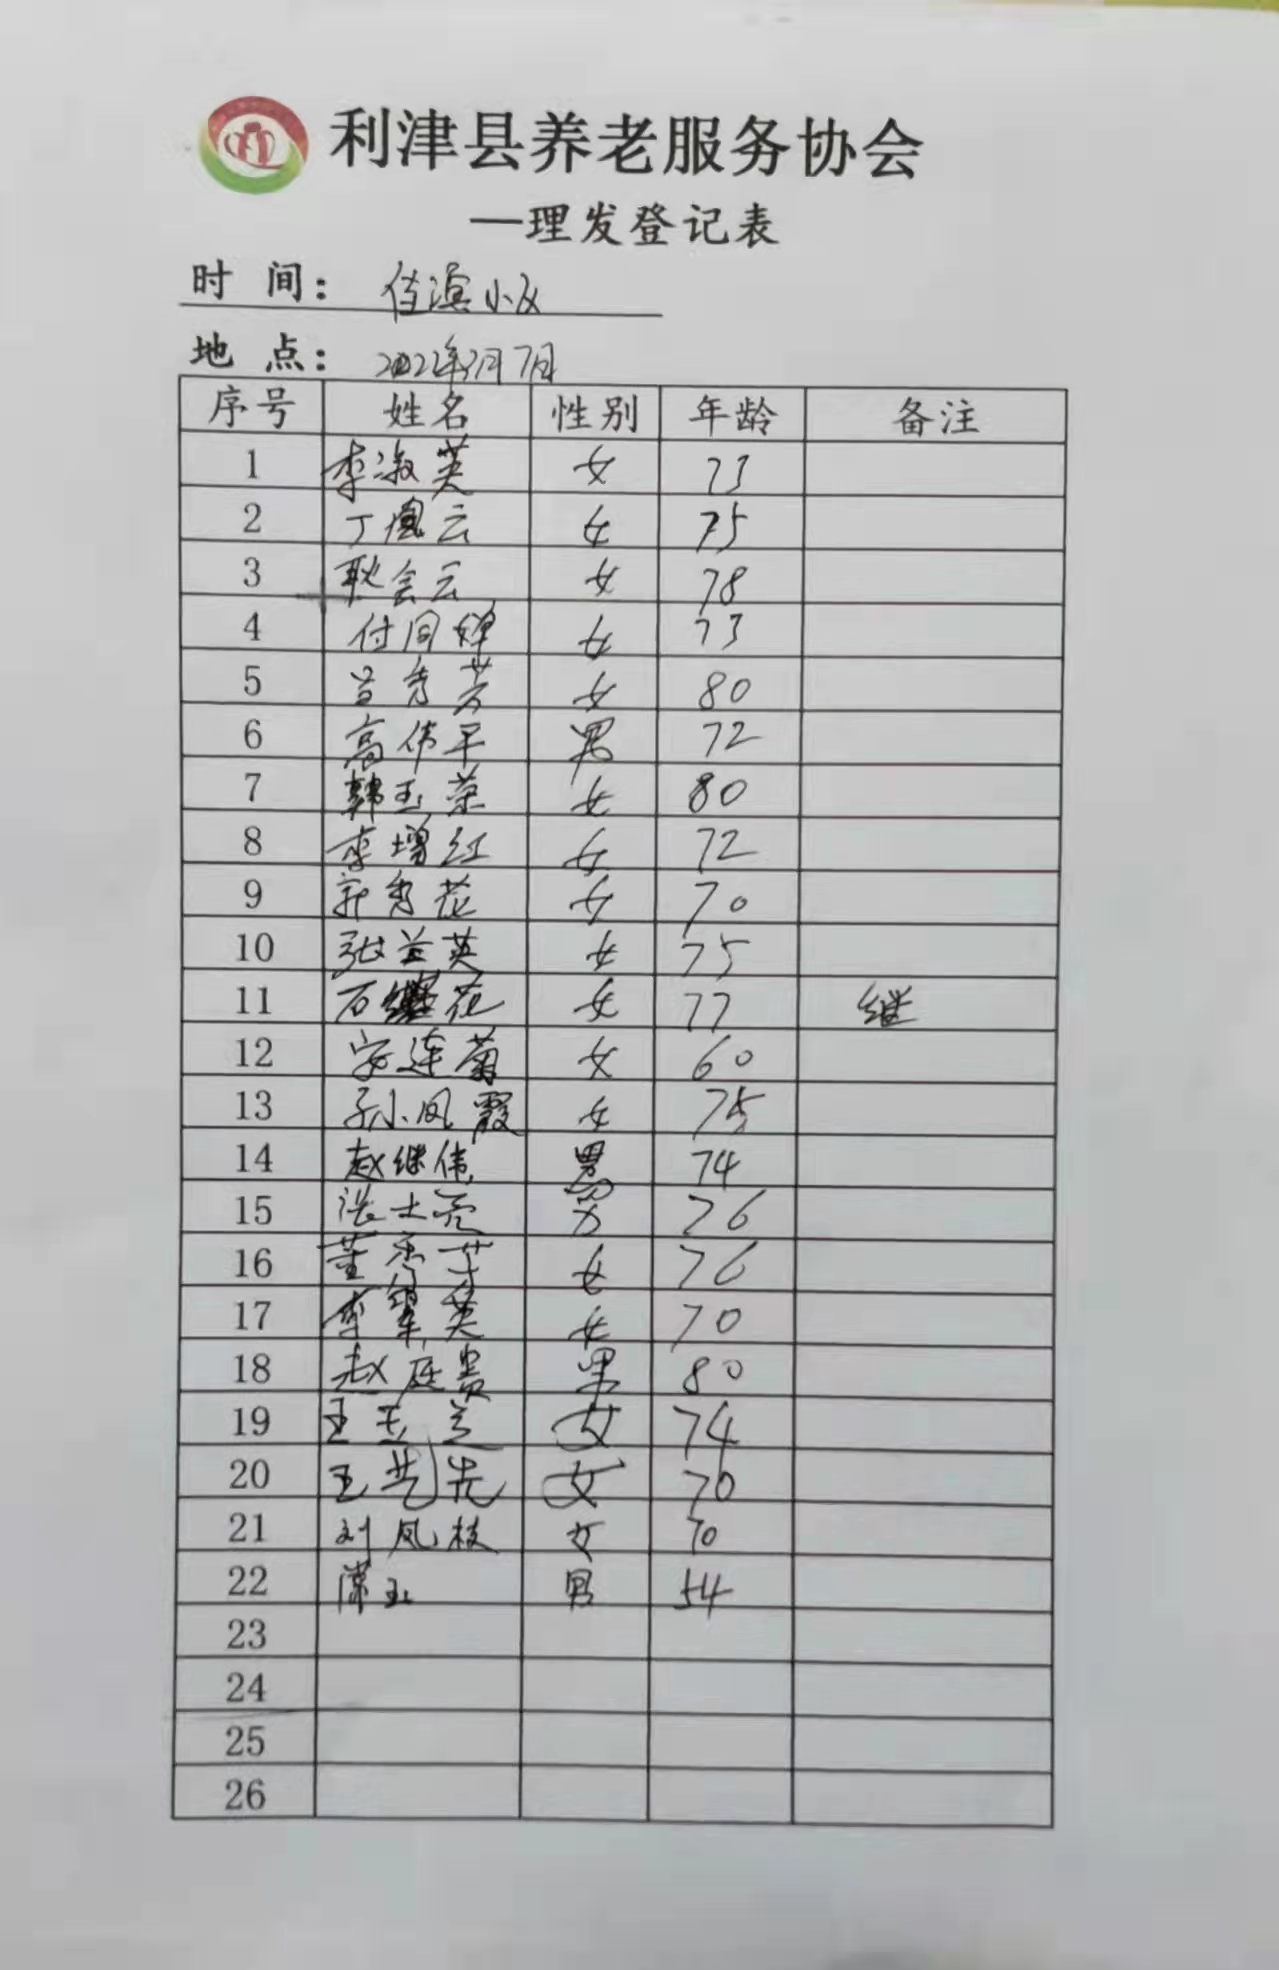 利津县养老服务协会
一理发登记表
时 间： 佳滨小区
地 点： 2022年3月7日
序号 姓名 性别 年龄 备注
1 李淑英 女 73
2 丁凤云 女 75
3 耿会云 女 78
4 付同 女 73
5 秀芳 女 80
6 高伟平 男 72
7 韩玉荣 女 80
8 李增红 女 72
9 秀花 女 70
10 张兰英 女 75
11 石继花 女 77 继
12 安连菊 女 60
13 孙小凤霞 女 75
14 赵继伟 男 74
15 张士亮 男 76
16 董秀芳 女 76
17 李翠英 女 70
18 赵庭贵 男 80
19 王玉兰 女 74
20 王先 女 70
21 刘凤枝 女 70
22 玉 男 54
23
24
25
26